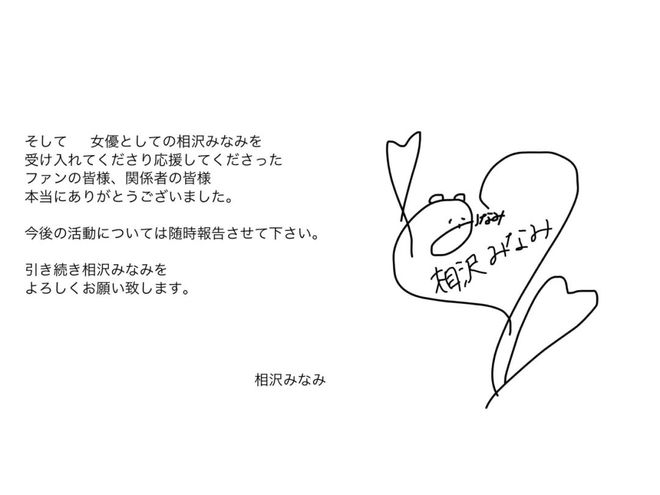 そして　 女優としての相沢みなみを
受け入れてくださり応援してくださった
ファンの皆様、関係者の皆様
本当にありがとうございました。
今後の活動については随時報告させて下さい。
引き続き相沢みなみを
よろしくお願い致します。
相沢みなみ
みなみ
相沢みなみ